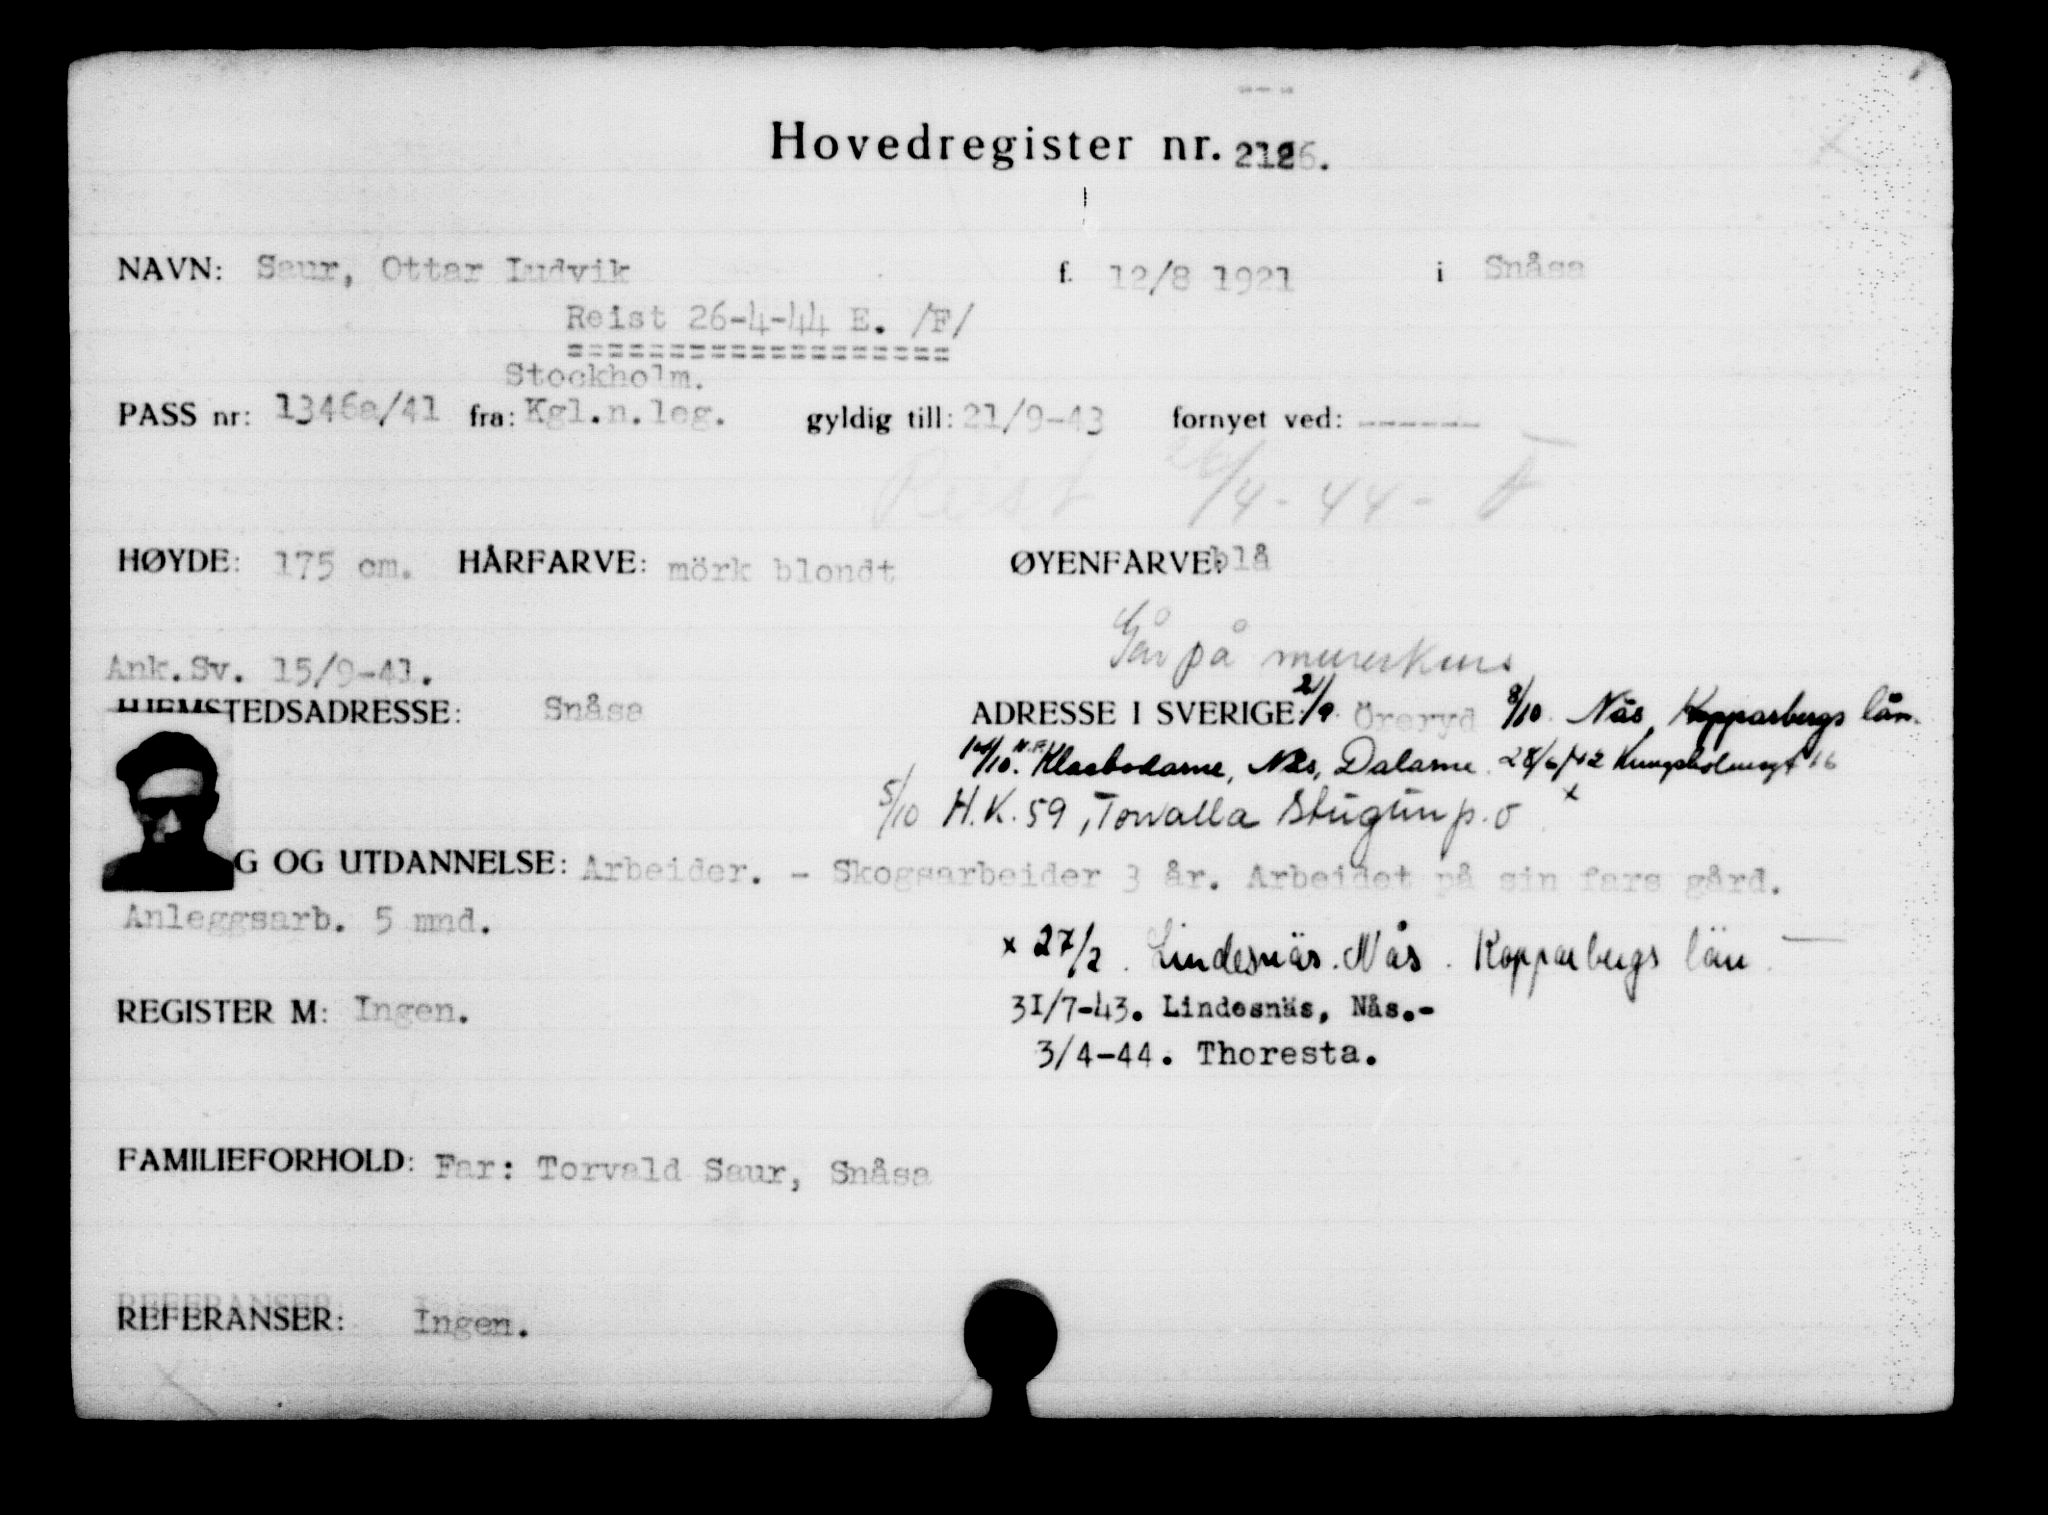 Hovedregister nr. 2126.
NAVN: Saur, Ottar Ludvik f. 12/8 1921 i Snåsa
Reist 26-4-44 E. /F/
===================
Stockholm.
PASS nr: 1346a/41 fra: Kgl.n.leg. gyldig till: 21/9-43 fornyet ved: ------
Reist 26/4-44- F
HØYDE: 175 cm. HÅRFARVE: mörk blondt ØYENFARVE: blå
Går på murerkurs
Ank.Sv. 15/9-41.
HJEMSTEDSADRESSE: Snåsa ADRESSE I SVERIGE: 21/9. Öreryd 8/10. Nås, Kopparbergs län.
14/10. Klasbodarne, Nås, Dalarne. 28/6/42 Kungsholmsgt 16
5/10 H.K. 59, Torvalla Stugun p.o x
G OG UTDANNELSE: Arbeider. - Skogsarbeider 3 år. Arbeidet på sin fars gård.
Anleggsarb. 5 mnd.
x 27/2. Lindesnäs. Nås. Kopparbergs län.
REGISTER M: Ingen.
31/7-43. Lindesnäs, Nås.-
3/4-44. Thoresta.
FAMILIEFORHOLD: Far: Torvald Saur, Snåsa
REFERANSER: Ingen.